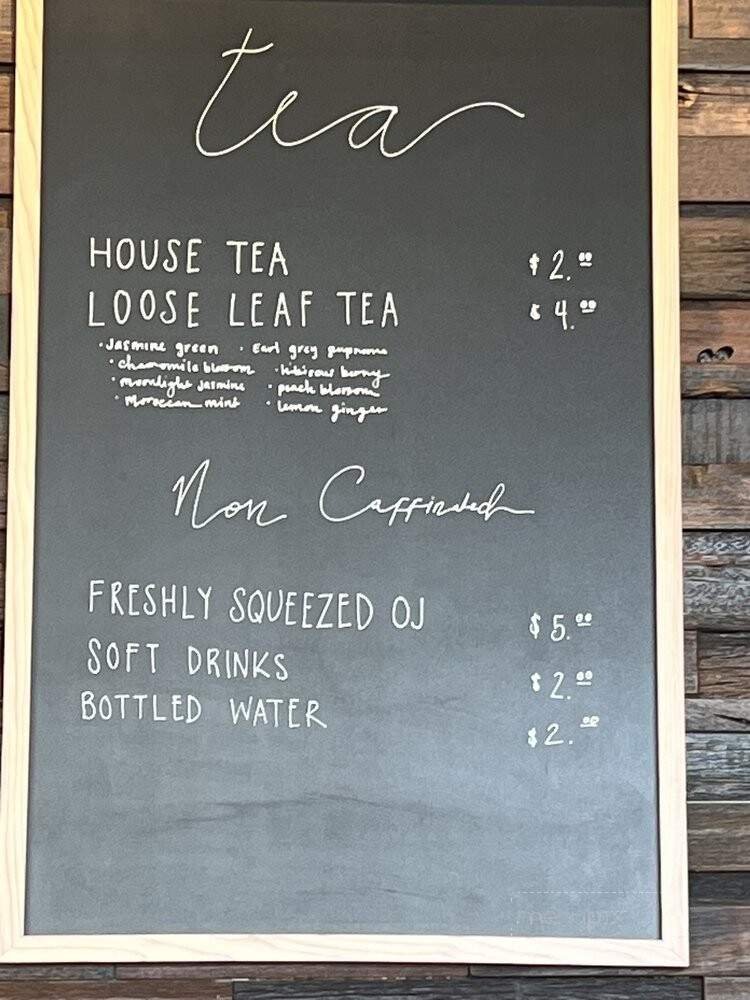 tea
HOUSE TEA $2.00
LOOSE LEAF TEA $4.00
· Jasmine green · Earl grey supreme
· chamomile blossom · hibiscus berry
· moonlight jasmine · peach blossom
· Moroccan mint · lemon ginger
Non Caffinated
FRESHLY SQUEEZED OJ $5.00
SOFT DRINKS $2.00
BOTTLED WATER $2.00